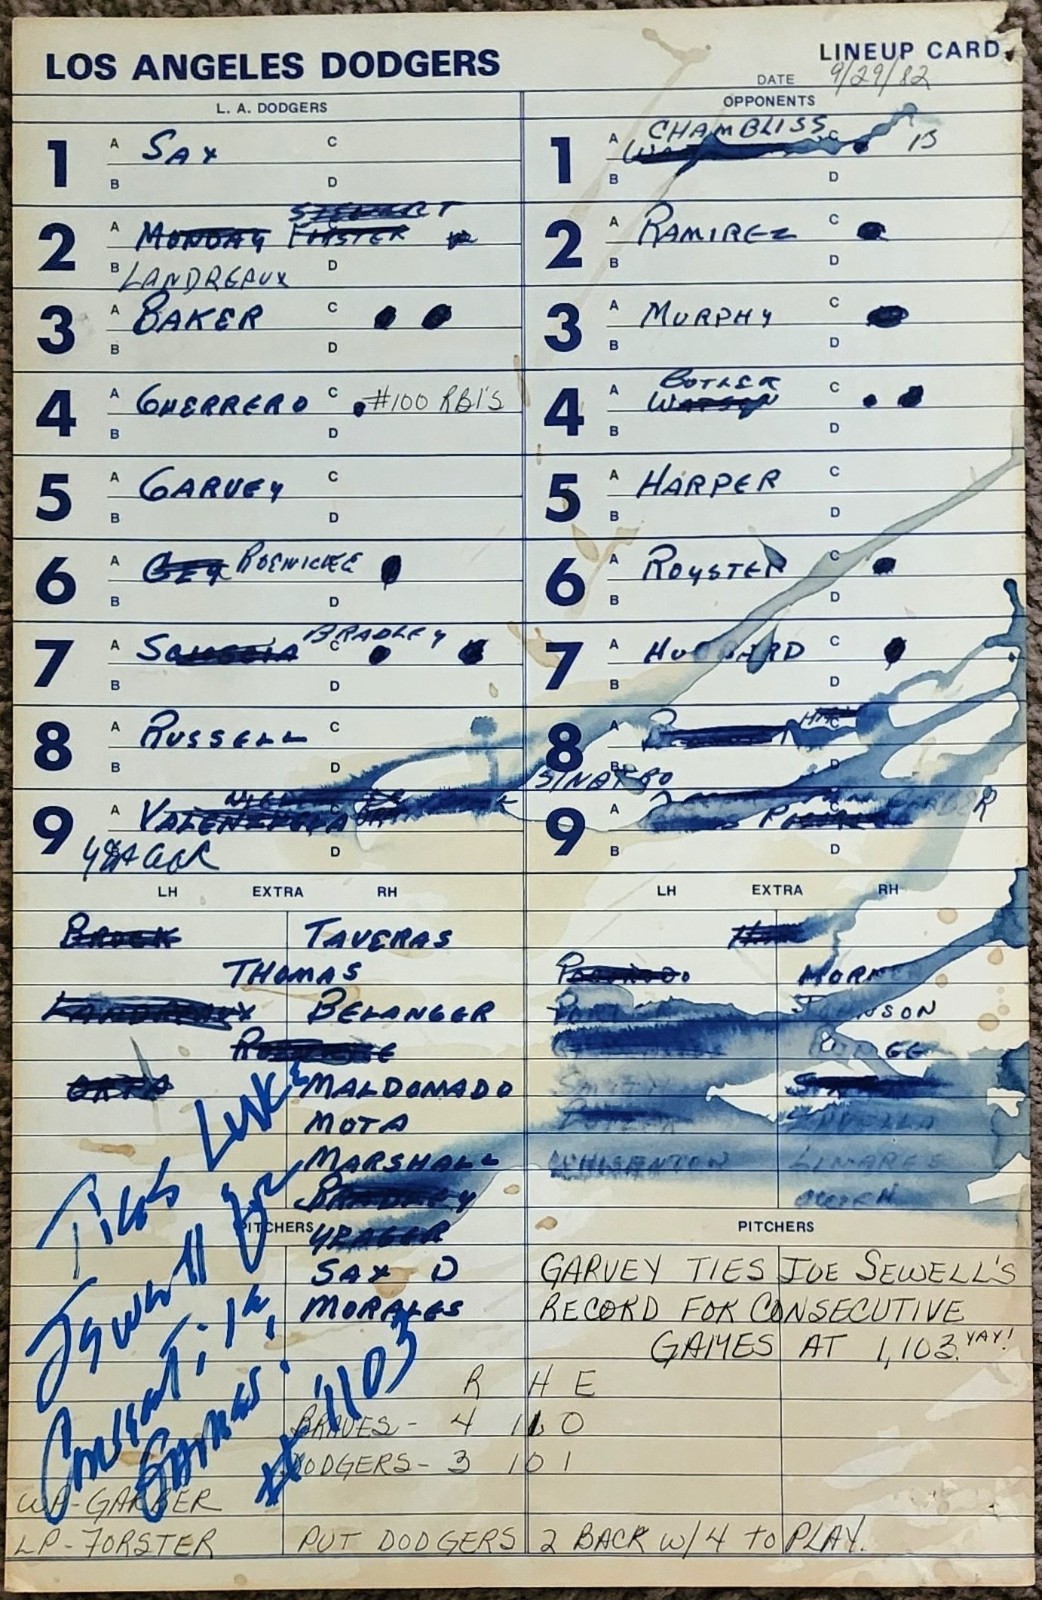 LOS ANGELES DODGERS LINEUP CARD
DATE 9/29/82
L. A. DODGERS OPPONENTS
1 A SAX C B D
1 A CHAMBLISS C 13 B D
2 A MONDAY STEWART FORSTER C B LANDREAUX D
2 A RAMIREZ C B D
3 A BAKER C B D
3 A MURPHY C B D
4 A GUERRERO C #100 RBI'S B D
4 A BUTLER WATSON C B D
5 A GARVEY C B D
5 A HARPER C B D
6 A CEY ROENICKE C B D
6 A ROYSTER C B D
7 A SCIOSCIA BRADLEY C B D
7 A HUBBARD C B D
8 A RUSSELL C B D
8 A C B SINATRO D
9 A VALENZUELA C YEAGER D
9 A GARBER C B D
LH EXTRA RH LH EXTRA RH
BROCK TAVERAS
THOMAS
LANDREAUX BELANGER JOHNSON
ROENICKE
ORTA MALDONADO SMITH
MOTA BUTLER
MARSHALL WHISENTON LINARES
BRADLEY OWEN
PITCHERS YEAGER PITCHERS
SAX D
MORALES
Ties Luke
Sewell for
Consecutive
Games!
# 1103
GARVEY TIES JOE SEWELL'S
RECORD FOR CONSECUTIVE
GAMES AT 1,103. YAY!
R H E
BRAVES - 4 11 0
DODGERS - 3 10 1
WP - GARBER
LP - FORSTER PUT DODGERS 2 BACK W/4 TO PLAY.